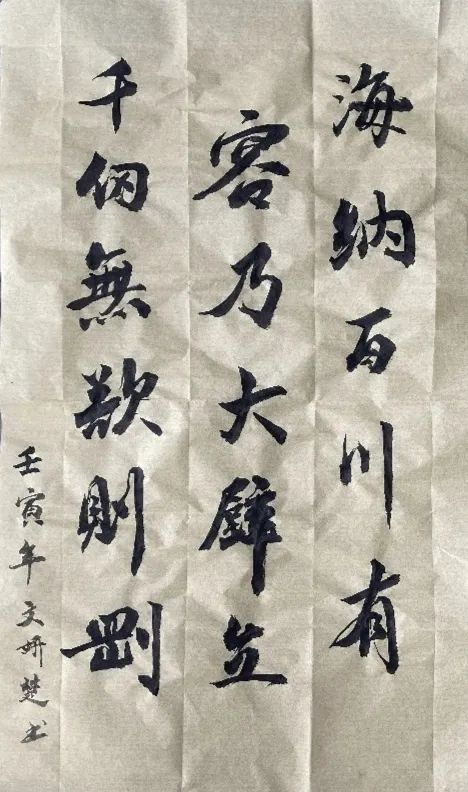 海納百川有
容乃大壁立
千仞無欲則剛
壬寅年文妍楚书